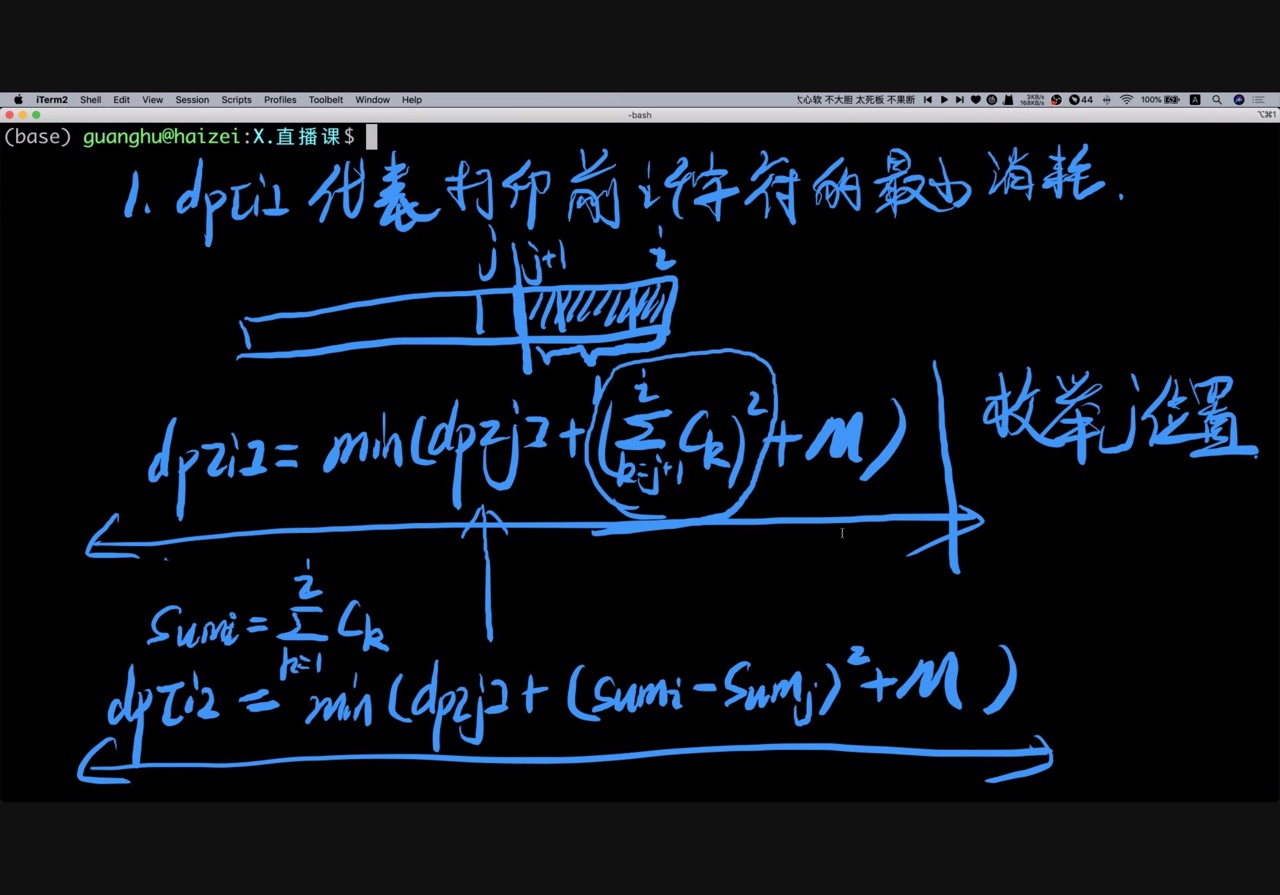 iTerm2 Shell Edit View Session Scripts Profiles Toolbelt Window Help 太心软 不大胆 太死板 不果断 3KB/s 168KB/s 44 100% A
-bash ⌥⌘1
(base) guanghu@haizei:X.直播课$
1. dp[i] 代表打印前 i 个字符的最少消耗.
j j+1 i
dp[i] = min(dp[j] + (∑_{k=j+1}^{i} C_k)² + M) 枚举 j 位置
Sum_i = ∑_{k=1}^{i} C_k
dp[i] = min(dp[j] + (Sum_i - Sum_j)² + M)